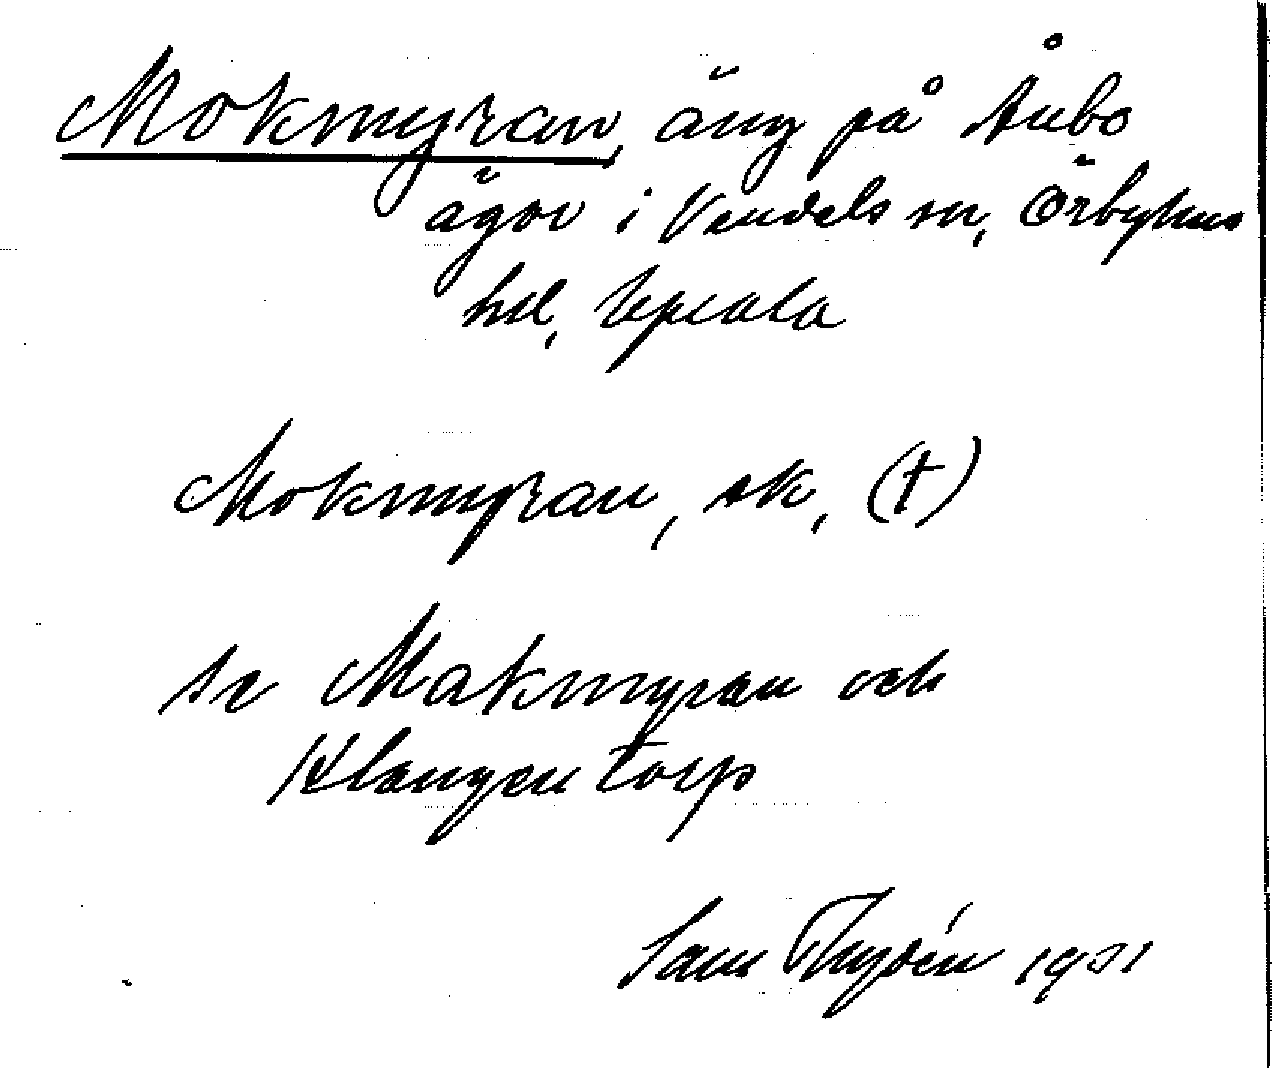 Mokmyran, äng på Åubo
ägor i Vendels sn, Örbyhus
hd, Upsala
Mokmyran, sk, (†)
se Makmyran och
Klangentorp
Sam Thydén 1931